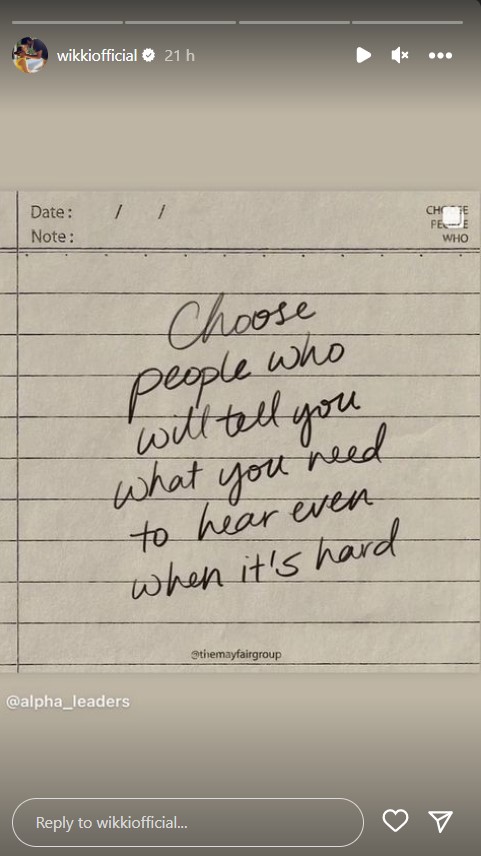 wikkiofficial 21 h
Date: / /
Note:
PEOPLE
WHO
Choose
people who
will tell you
what you need
to hear even
when it's hard
@themayfairgroup
@alpha_leaders
Reply to wikkiofficial...